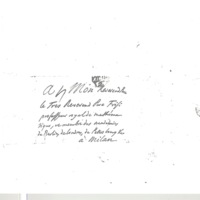 A Mon Reverend
le Très Reverend Pere Frisi
professeur royal de mathéma
tique, et membre des académies
de Berlin, de Londres, de Petersbourg &c
à Milan